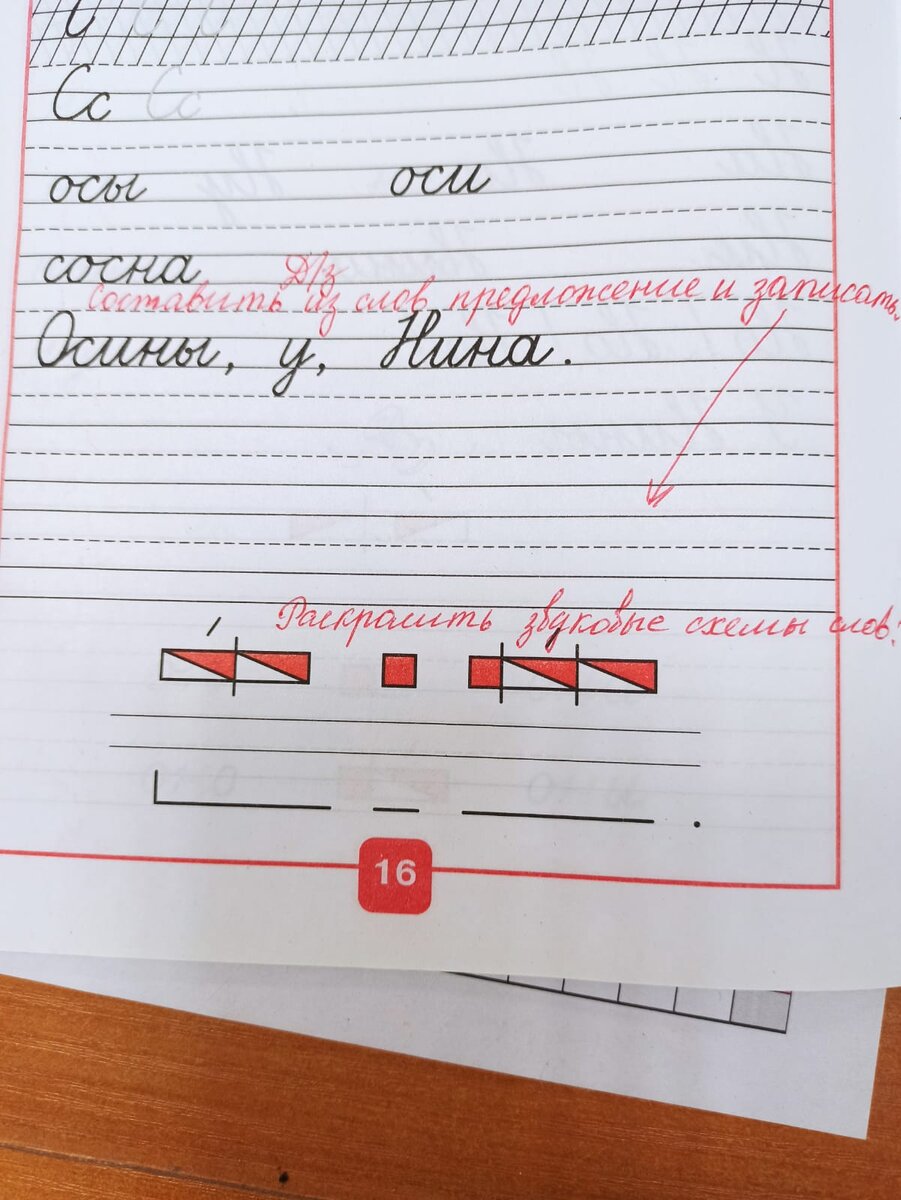 Сс Сс
осы оси
сосна
Д/з
составить из слов предложение и записать.
Осины, у, Нина.
Раскрасить звуковые схемы слов.
16